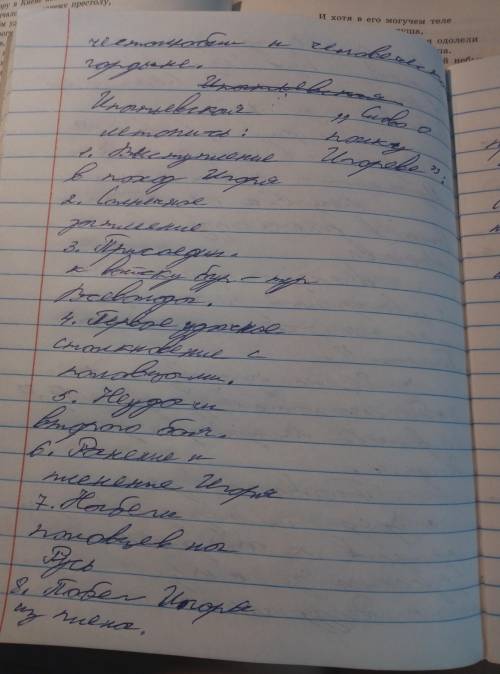 ору в Киев
престолу,
И хотя в его могучем теле
одолели
честолюбии и человеческ.
гордыне.
Ипатьевская
Ипатьевской
летопись:
"Слово о
полку
Игореве":
1. Выступление
в поход Игоря
2. Солнечное
затмение
3. Присоедин.
к войску бур-тур
Всеволода.
4. Первое удачное
столкновение с
половцами.
5. Неудачи
второго боя.
6. Ранение и
пленение Игоря
7. Набеги
половцев на
Русь
8. Побег Игоря
из плена.